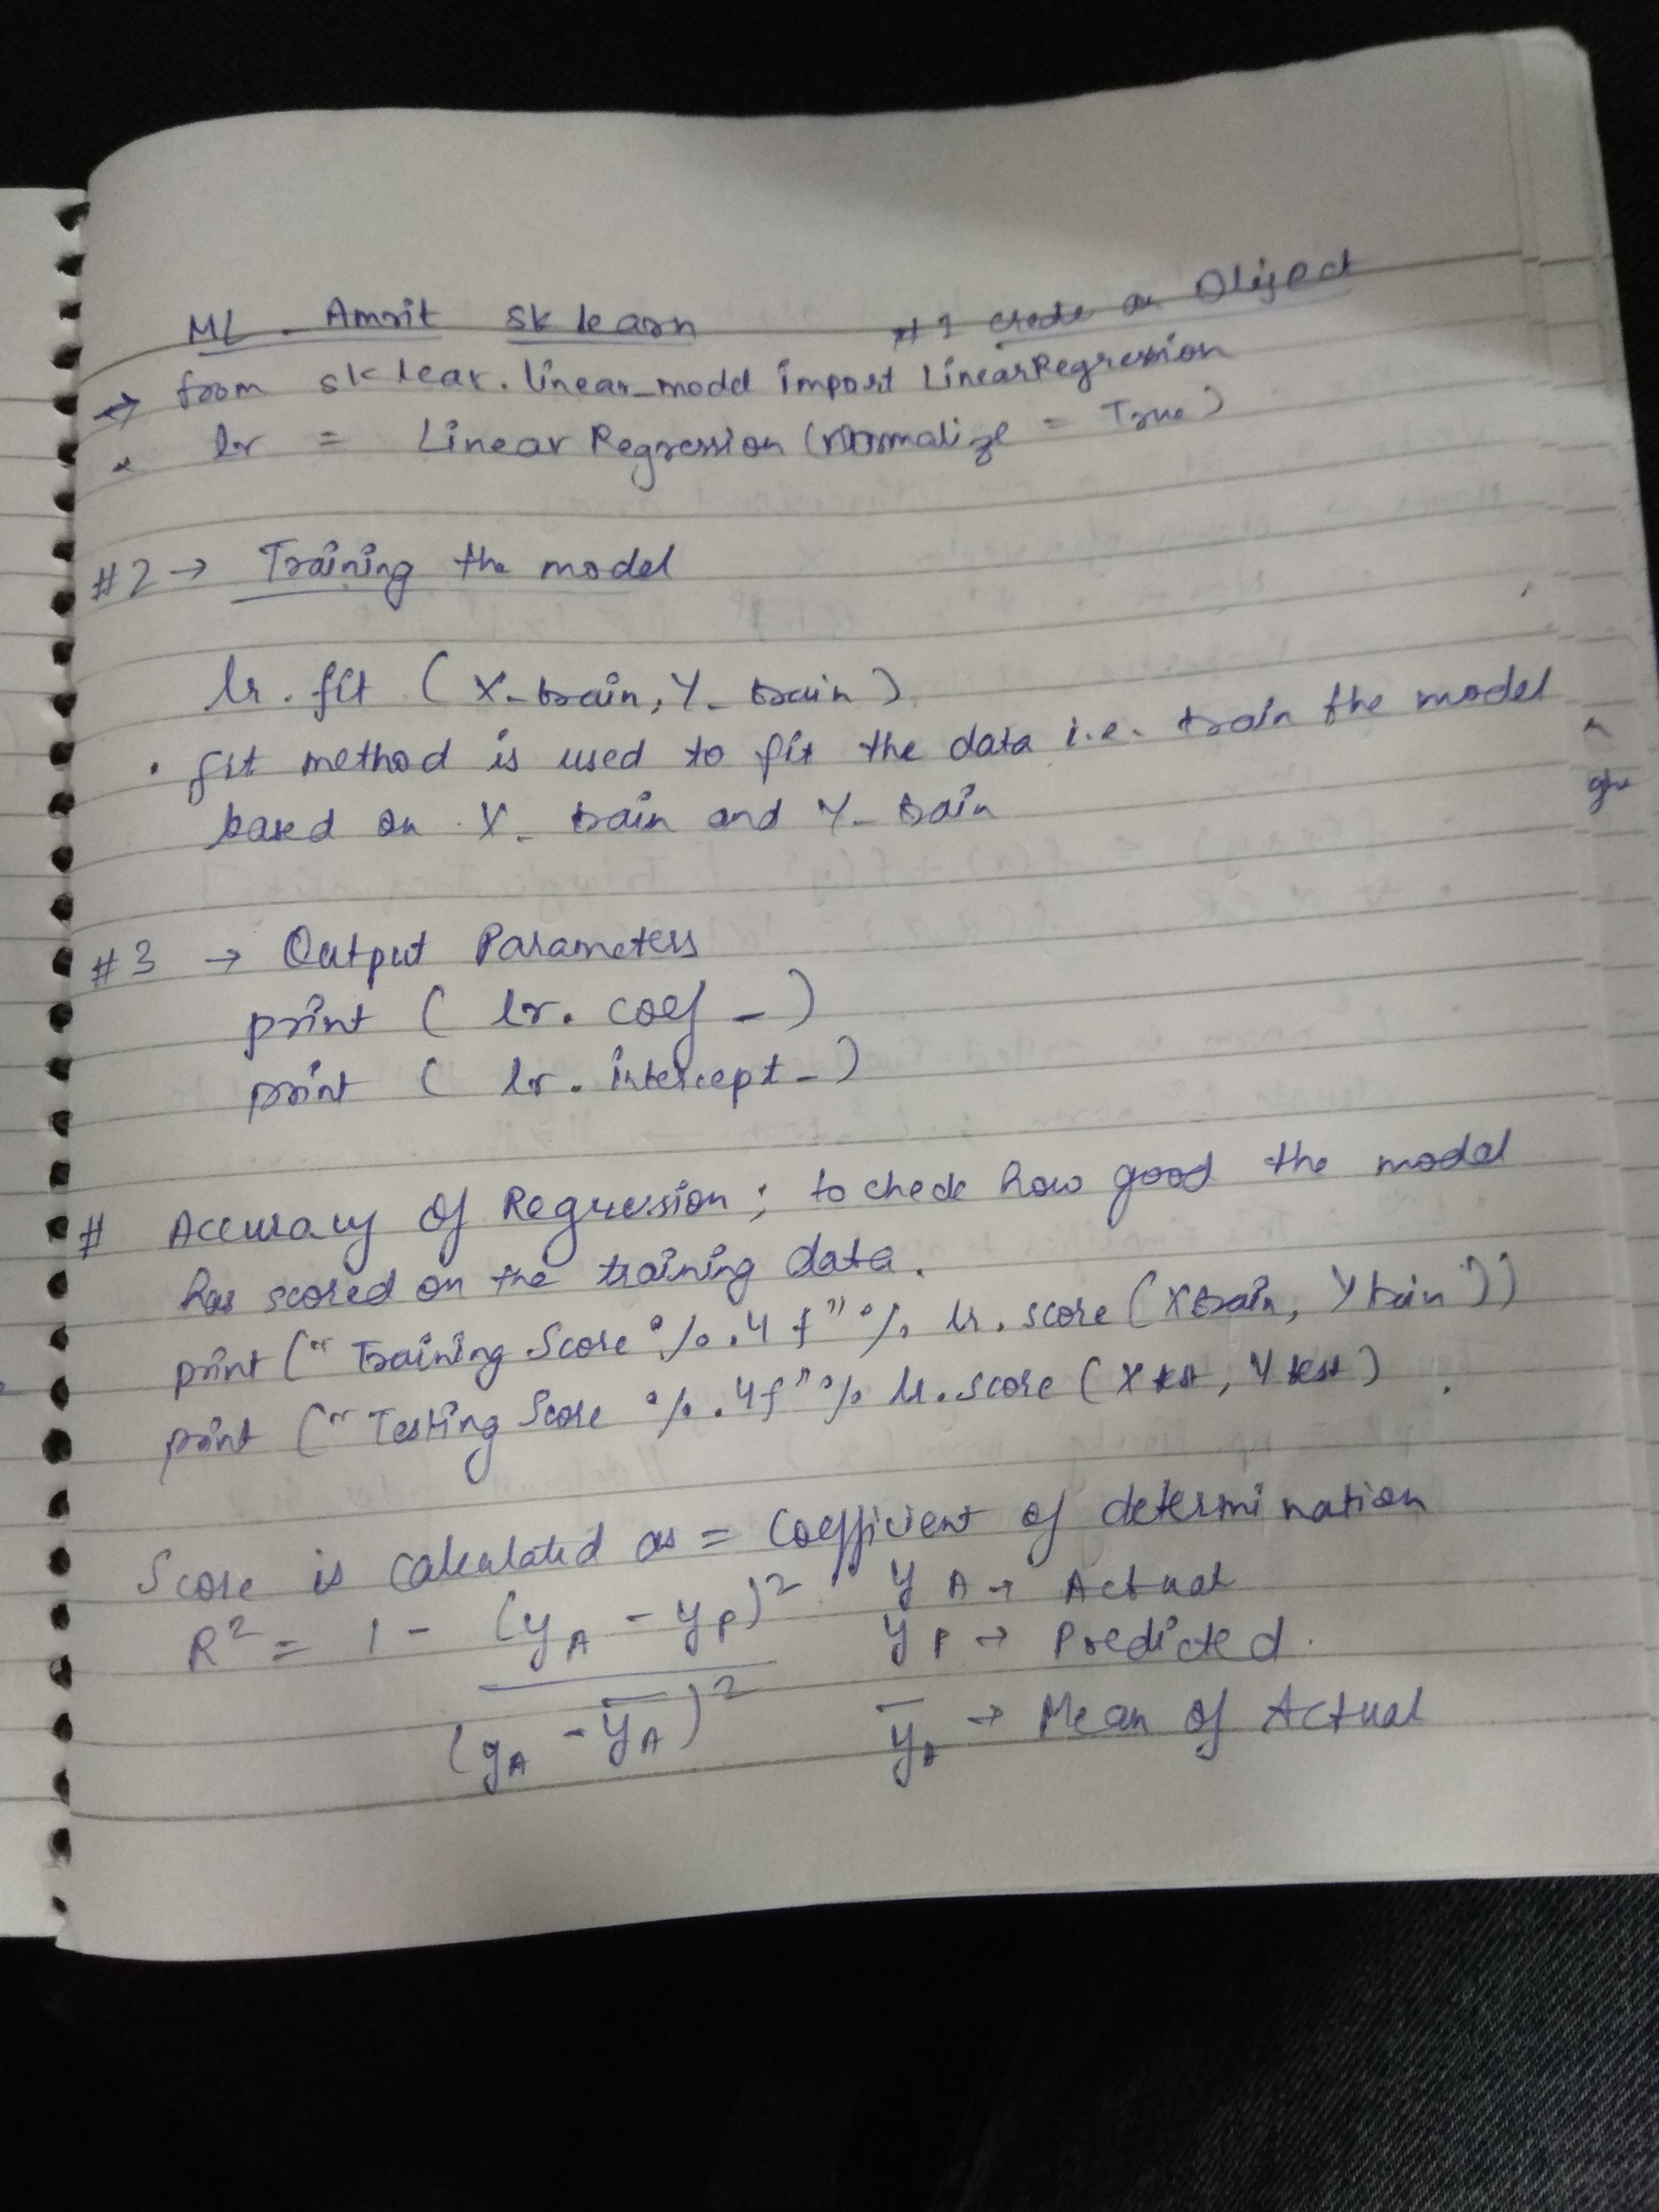 ML - Amrit sk learn #1 create an Object
→ from sk lear. linear_model import LinearRegression
lr = Linear Regression (normalize = True)
#2 → Training the model
lr. fit ( X_train, Y_train )
• fit method is used to fit the data i.e. train the model
based on X_train and Y_train
#3 → Output Parameters
print ( lr. coef _ )
print ( lr. intercept_ )
# Accuracy of Regression ; to check how good the model
has scored on the training data.
print (" Training Score %.4 f" % lr. score ( Xtrain, Ytrain ))
print (" Testing Score %.4f" % lr. score ( X test, Y test )
Score is calculated as = Coefficient of determination
R² = 1 - (yA - yP)² / (yA - ȳA)²
yA → Actual
yP → Predicted.
ȳA → Mean of Actual